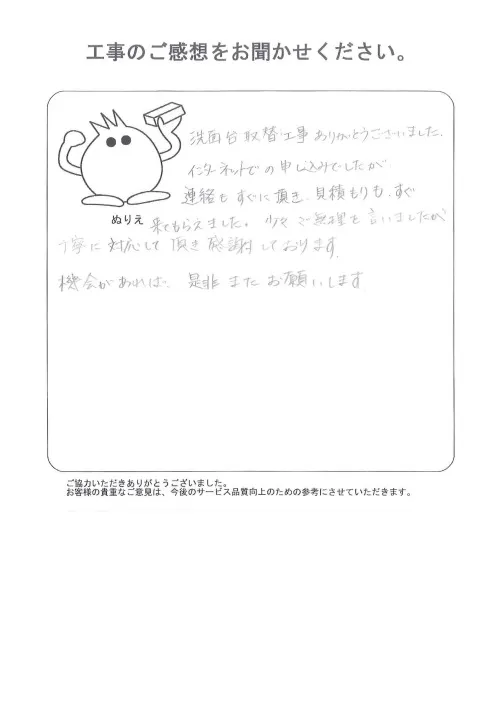 工事のご感想をお聞かせください。
洗面台取替工事ありがとうございました。
インターネットでの申し込みでしたが
連絡もすぐに頂き、見積もりも、すぐ
ぬりえ
来てもらえました。少々ご無理を言いましたが
丁寧に対応して頂き感謝しております。
機会があれば、是非またお願いします
ご協力いただきありがとうございました。
お客様の貴重なご意見は、今後のサービス品質向上のための参考にさせていただきます。